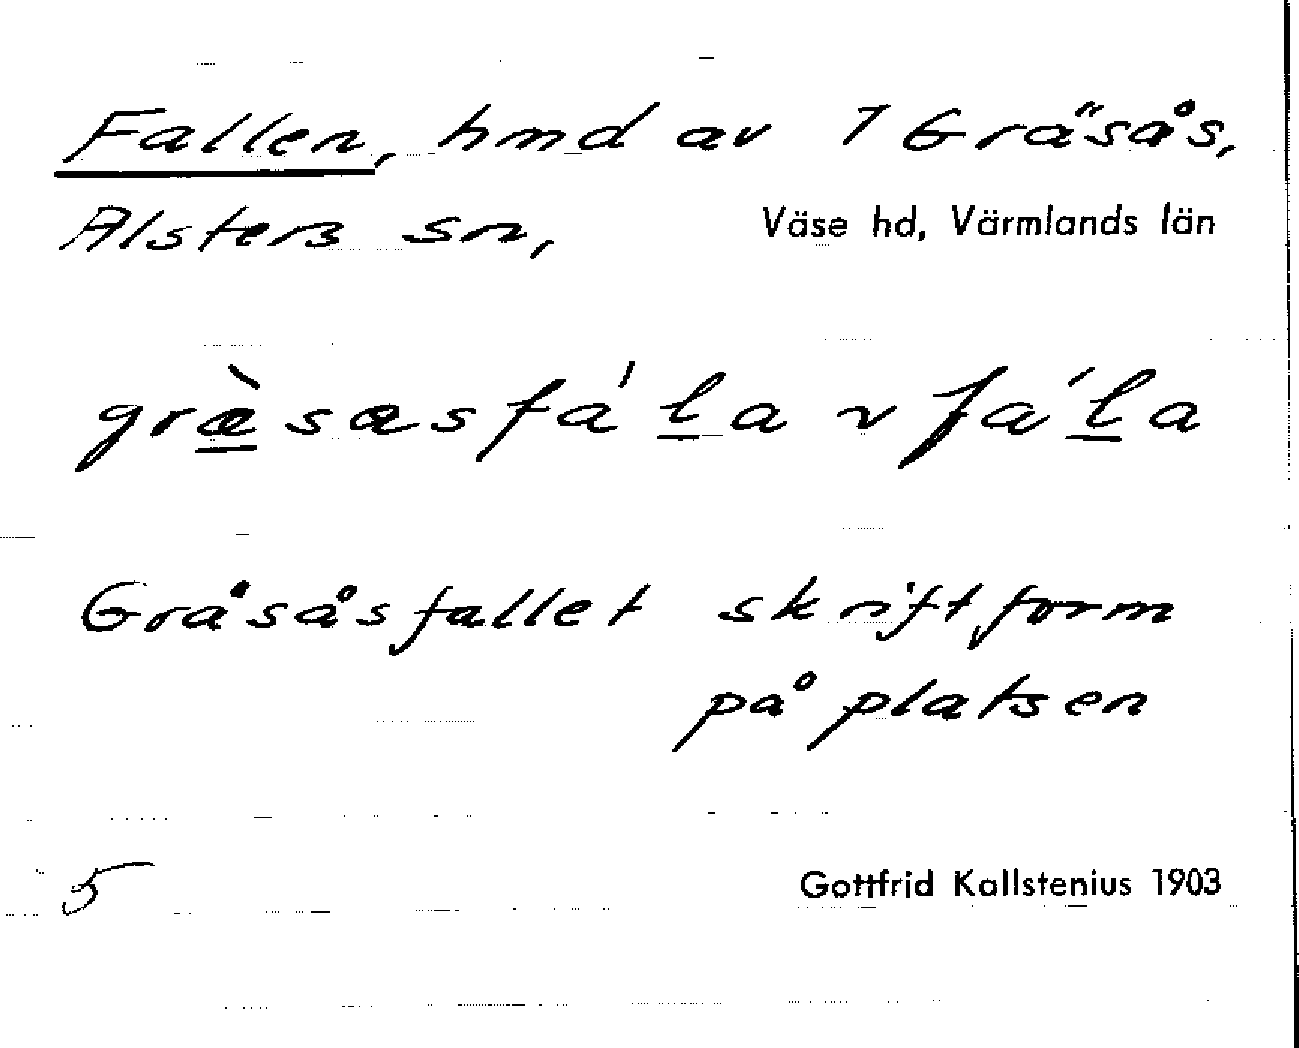 Fallen, hmd av 1 Gräsås,
Alsters sn, Väse hd, Värmlands län
græ̀sæsfá'la ~ fá'la
Gråsåsfallet skriftform
på platsen
5 Gottfrid Kallstenius 1903